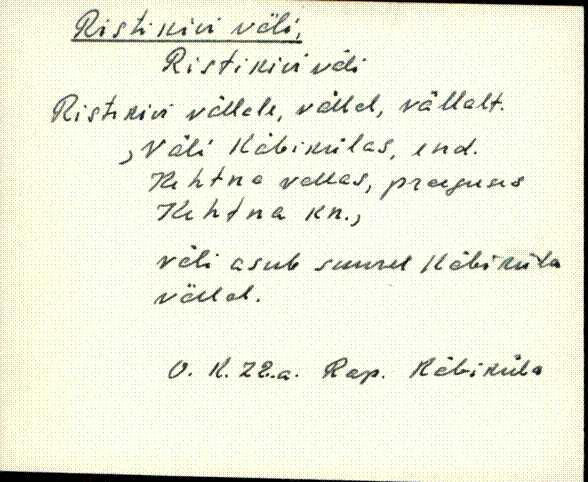 Ristikivi väli,
Ristikivi väli
Ristikivi vällale, vällal, vällalt.
, Väli Käbikülas, end.
Kehtna vallas, praeguses
Kehtna kn.,
väli asub suurel Käbiküla
vällal.
O. K. 72.a. Rap. Käbiküla